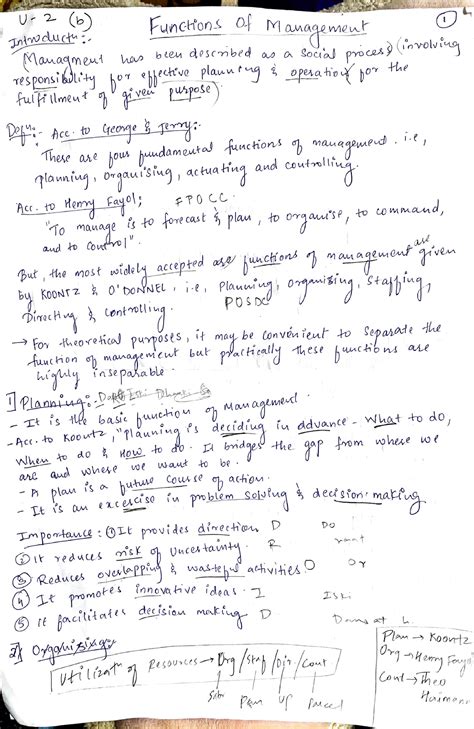 U-2 (b)
Functions Of Management
①
Introductn:-
Managment has been described as a social process (involving
responsibility for effective planning & operation for the
fulfillment of given purpose)
Defn:- Acc. to George & Terry:-
These are four fundamental functions of management. i.e,
planning, organising, actuating and controlling.
Acc. to Henry Fayol; FPOCC.
"To manage is to forecast & plan, to organise, to command,
and to control".
But, the most widely accepted are functions of management are given
by KOONTZ & O'DONNEL, i.e, Planning, organizing, Staffing,
Directing & controlling. POSDC
→ For theoretical purposes, it may be convenient to separate the
function of management but practically these functions are
highly inseparable.
1] Planning:-
- It is the basic function of Management.
- Acc. to Koontz, "planning is deciding in advance - What to do,
When to do & How to do. It bridges the gap from where we
are and where we want to be.
- A plan is a future course of action.
- It is an excercise in problem solving & decision making
Importance: ① It provides direction D Do
② It reduces risk of uncertainty. R
③ Reduces overlapping & wasteful activities O Or
④ It promotes innovative ideas. I
⑤ It facilitates decision making D
2] Organising
Utilizatn of Resources → Org / Staf / Dir / Cont
Plan → Koontz
Org → Henry Fayol
Cont → Theo
Haimann